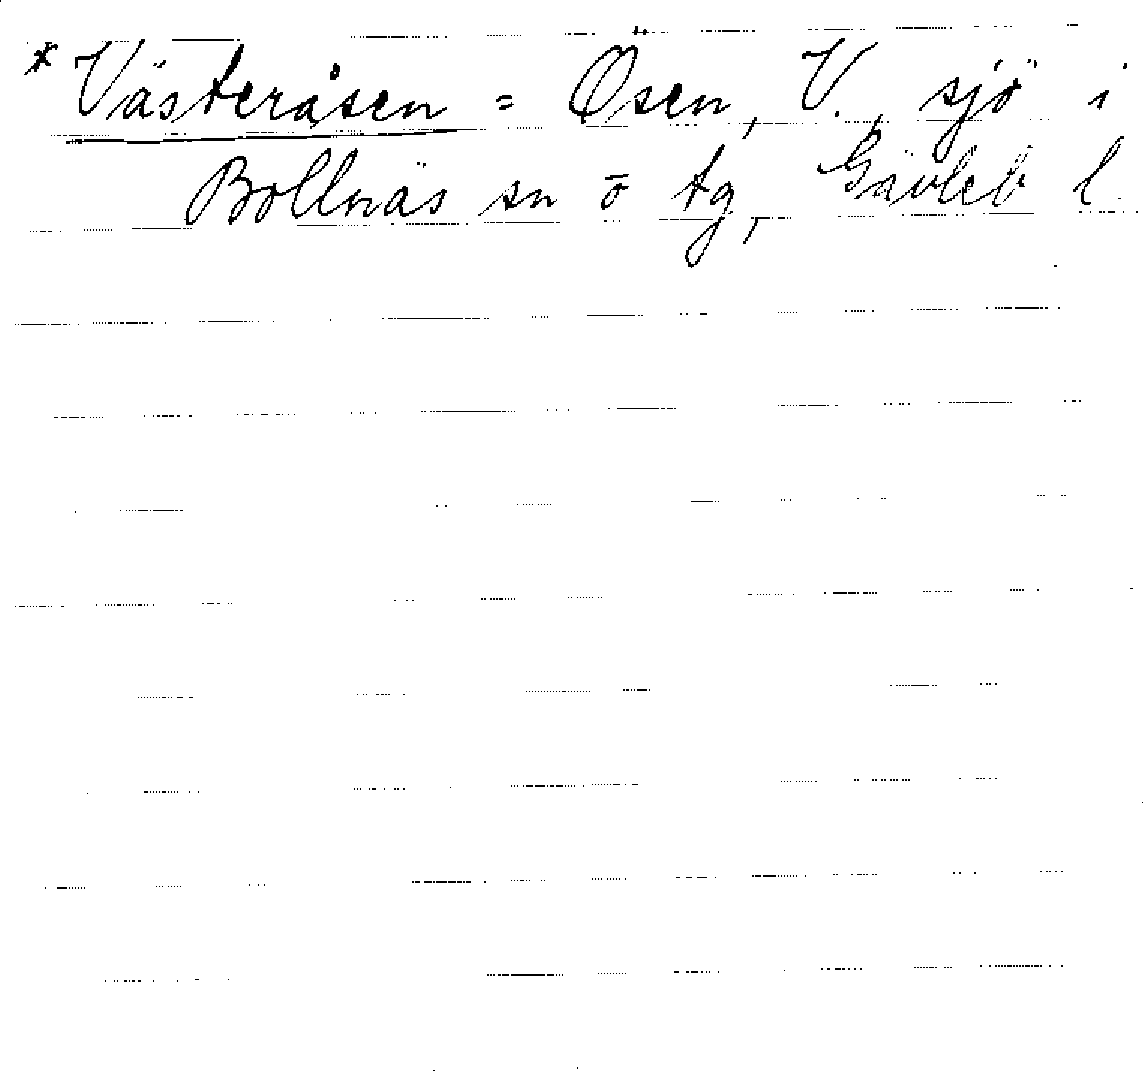 * Västeråsen = Ösen, V., sjö i
Bollnäs sn o tg, Gävleb l.